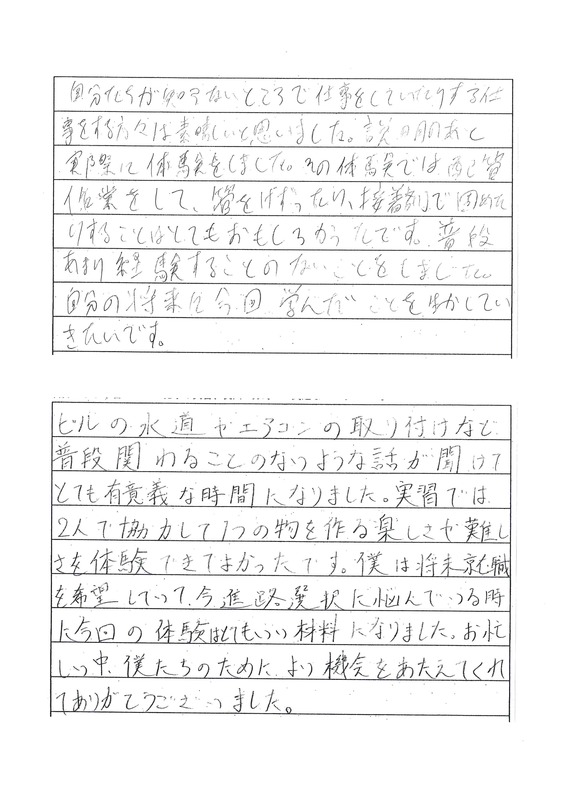 自分たちが知らないところで仕事をしていたりする仕
事をする方々は素晴しいと思いました。説明のあと
実際に体験をしました。その体験では配管
作業をして、管をけずったり、接着剤で固めた
りすることはとてもおもしろかったです。普段
あまり経験することのないことをしました。
自分の将来に今回学んだことを生かしてい
きたいです。
ビルの水道やエアコンの取り付けなど
普段関わることのないような話が聞けて
とても有意義な時間になりました。実習では
2人で協力して1つの物を作る楽しさや難し
さを体験できてよかったです。僕は将来就職
を希望していて、今進路選択に悩んでいる時
に今回の体験はとてもいい材料になりました。お忙
しい中、僕たちのために、より機会をあたえてくれ
てありがとうございました。